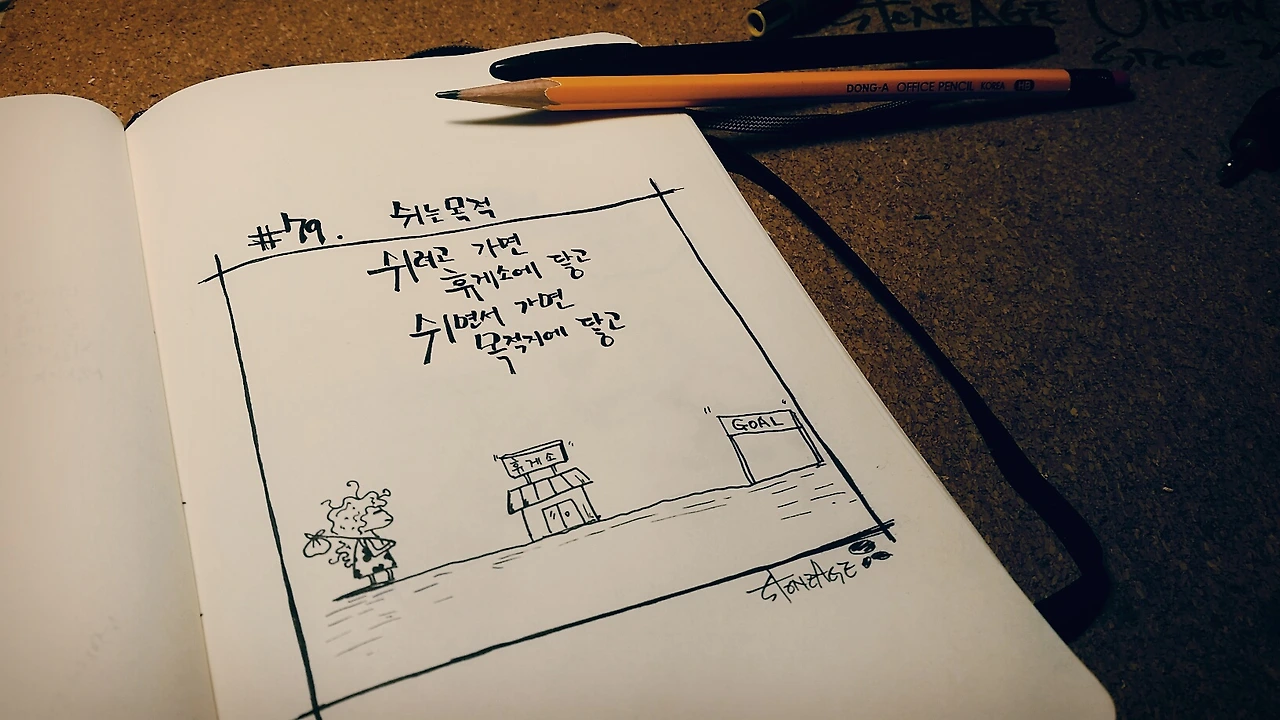 STONEAGE UNION
DONG-A OFFICE PENCIL KOREA HB
#79. 쉬는목적
쉬려고 가면
휴게소에 닿고
쉬면서 가면
목적지에 닿고
GOAL
휴게소
STONEAGE